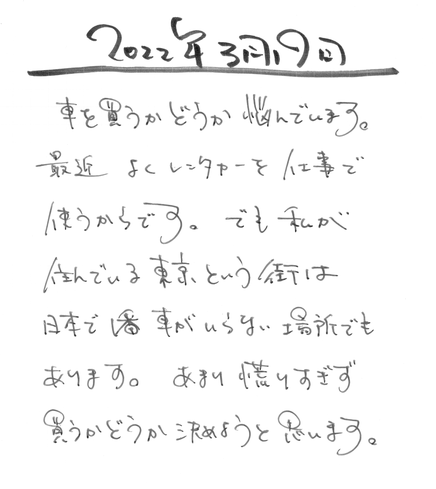 2022年3月19日
車を買うかどうか悩んでいます。
最近 よくレンタカーを仕事で
使うからです。でも私が
住んでいる東京という街は
日本で1番車がいらない場所でも
あります。あまり慌りすぎず
買うかどうか決めようと思います。